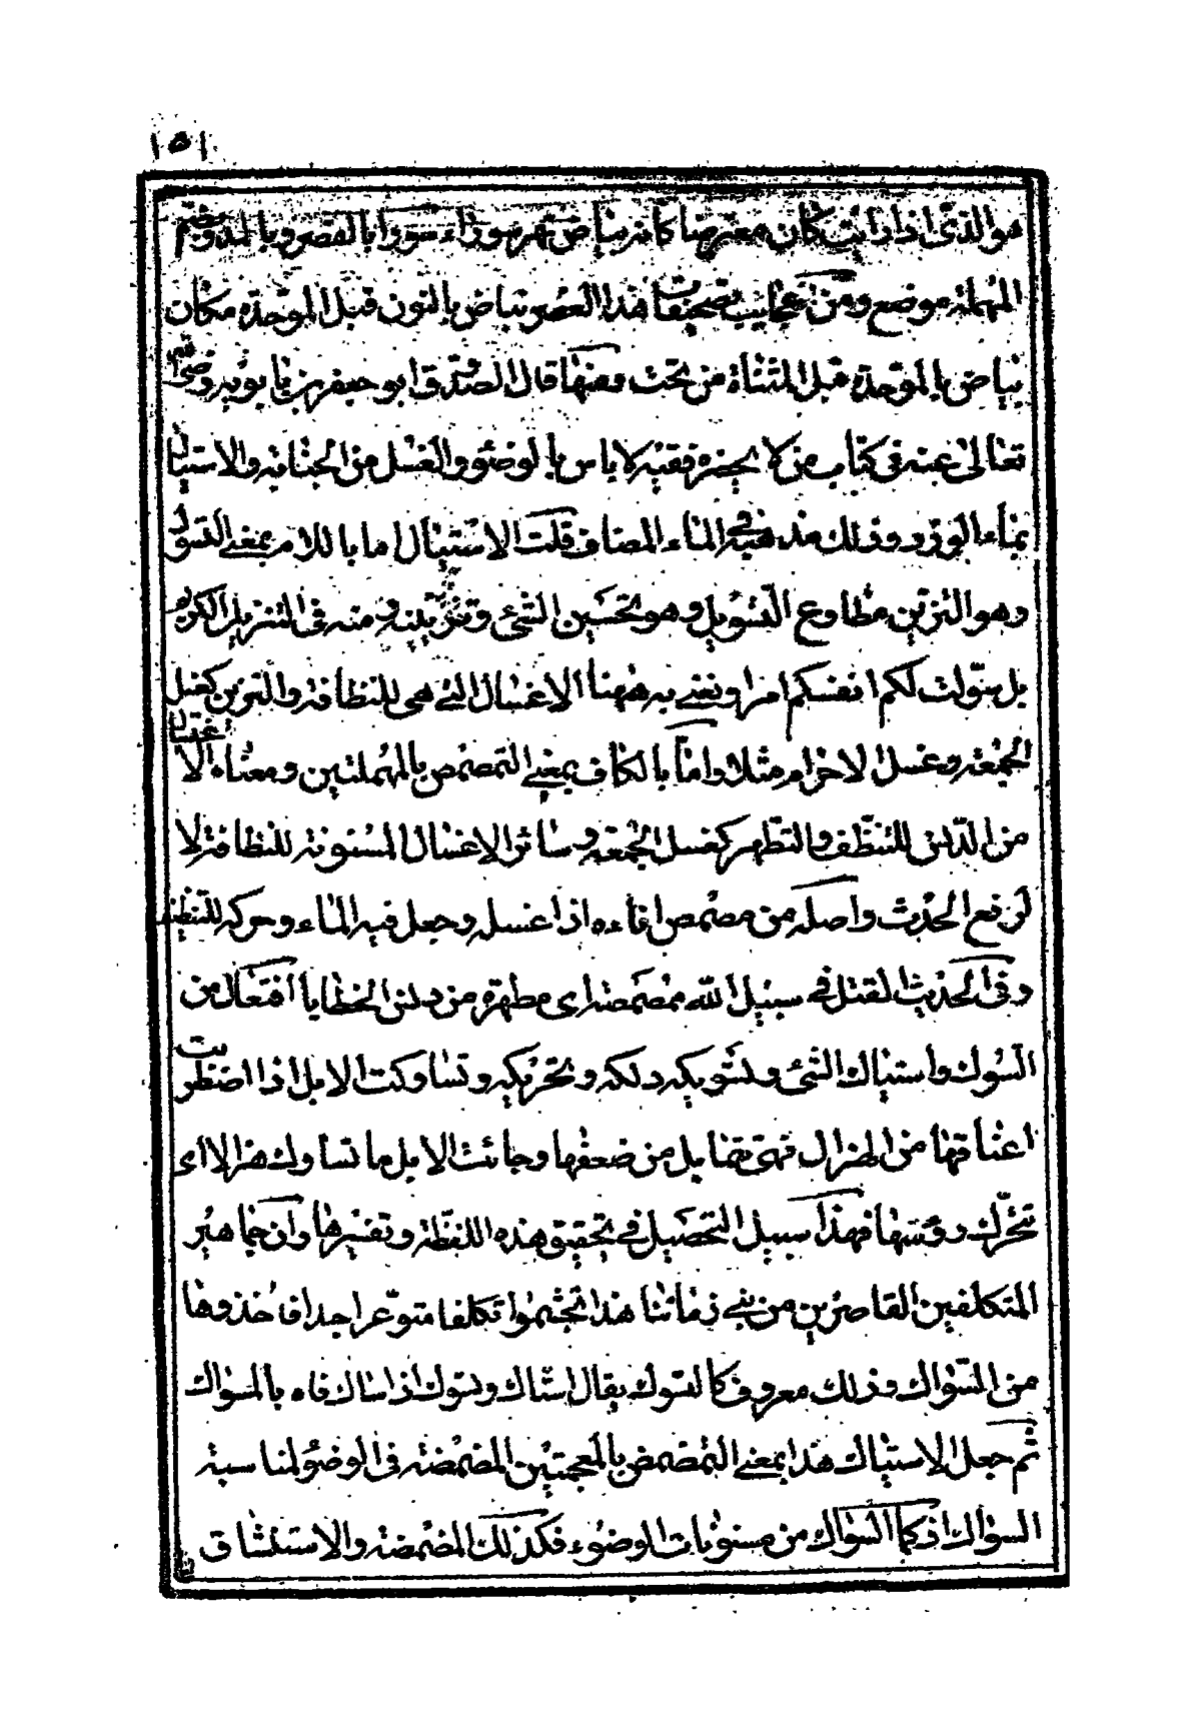 ١٥١
هو الذى اذا رايته كان معترضا كانه بياض نهر سوراء سورا بالقصر و بالمد و بضم
المهملة موضع ومن عجايب تصحيفات هذا العصر نباض بالنون قبل الموحدة مكان
بياض بالموحدة قبل المثناة من تحت ومنها قال الصدوق ابو جعفر بن بابويه رضى الله
تعالى عنه فى كتاب من لا يحضره فقيه لا باس بالوضوء والغسل من الجنابة والاستياك
بماء الورد وذلك مذهبه فى الماء المضاف قلت الاستيال اما باللام بمعنى التسول
وهو التزين مطاوع التسويل وهو تحسين الشئ وتزيينه ومنه فى التنزيل الكريم
بل سولت لكم انفسكم امرا ونعنى به ههنا الاغسال التى هى للنظافة والتزين كغسل
الجمعة وغسل الاحرام مثلا واما بالكاف بمعنى التمصمص بالمهملتين ومعناه الاغتسال
من الدنس للتنظف والتطهر كغسل الجمعة وسائر الاغسال المسنونة للنظافة لا
لرفع الحدث واصله من مصمص اناءه اذا غسله وجعل فيه الماء وحركه للتنظيف
وفى الحديث القتل فى سبيل الله ممصمصة اى مطهرة من دنس الخطايا افتعال من
السوك واستياك الشئ وتسويكه دلكه وتحريكه وتساوكت الابل اذا اضطربت
اعناقها من الهزال فهى تتمايل من ضعفها وجائت الابل ما تساوك هزالا اى
تحرك رؤسها فهذا سبيل التحصيل فى تحقيق هذه اللفظة وتفسيرها وان جماهير
المتكلفين القاصرين من بنى زماننا هذا تجشموا تكلفا متوعرا جدا فاخذوها
من السواك وذلك معروف كالتسوك يقال استاك وتسوك اذا ساك فاه بالسواك
ثم جعل الاستياك هذا بمعنى التمضمض بالمعجمتين المضمضة فى الوضوء لمناسبة
السواك اذ كما السواك من مسنونات الوضوء فكذلك المضمضة والاستنشاق